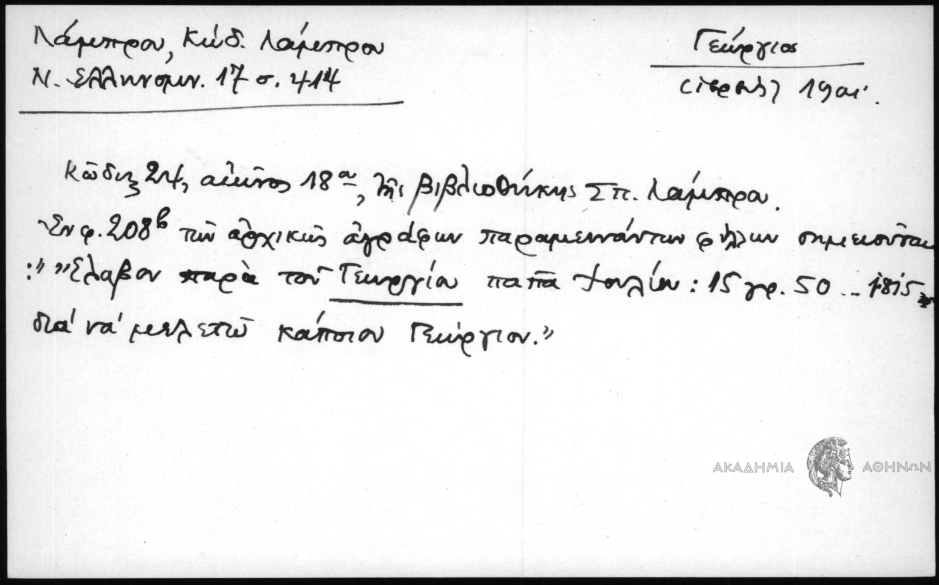 Λάμπρου, Κώδ. Λάμπρου
Ν. Ελληνομν. 17 σ. 414
Γεώργιος
(ιερεύς)
Κῶδιξ 24, αἰῶνος 18ου, τῆς βιβλιοθήκης Σπ. Λάμπρου.
Ἐν φ. 208b τῶν ἀρχικῶς ἀγράφων παραμεινάντων φύλλων σημειοῦται
: "Ἔλαβον παρὰ τοῦ Γεωργίου παπᾶ : 15 γρ. 50 .. 1815
διά νά μελετῶ κάποιον Γεώργιον."
ΑΚΑΔΗΜΙΑ ΑΘΗΝΩΝ